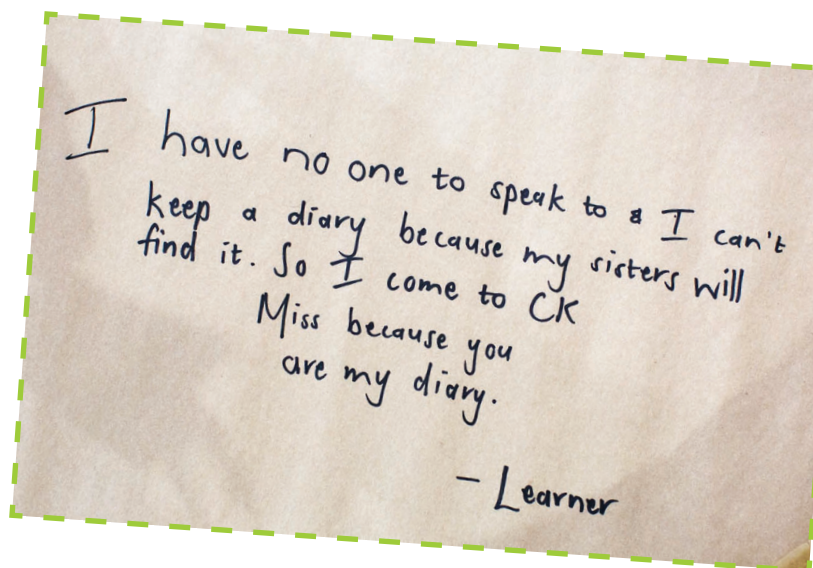 I have no one to speak to & I can't
keep a diary because my sisters will
find it. So I come to CK
Miss because you
are my diary.
- Learner